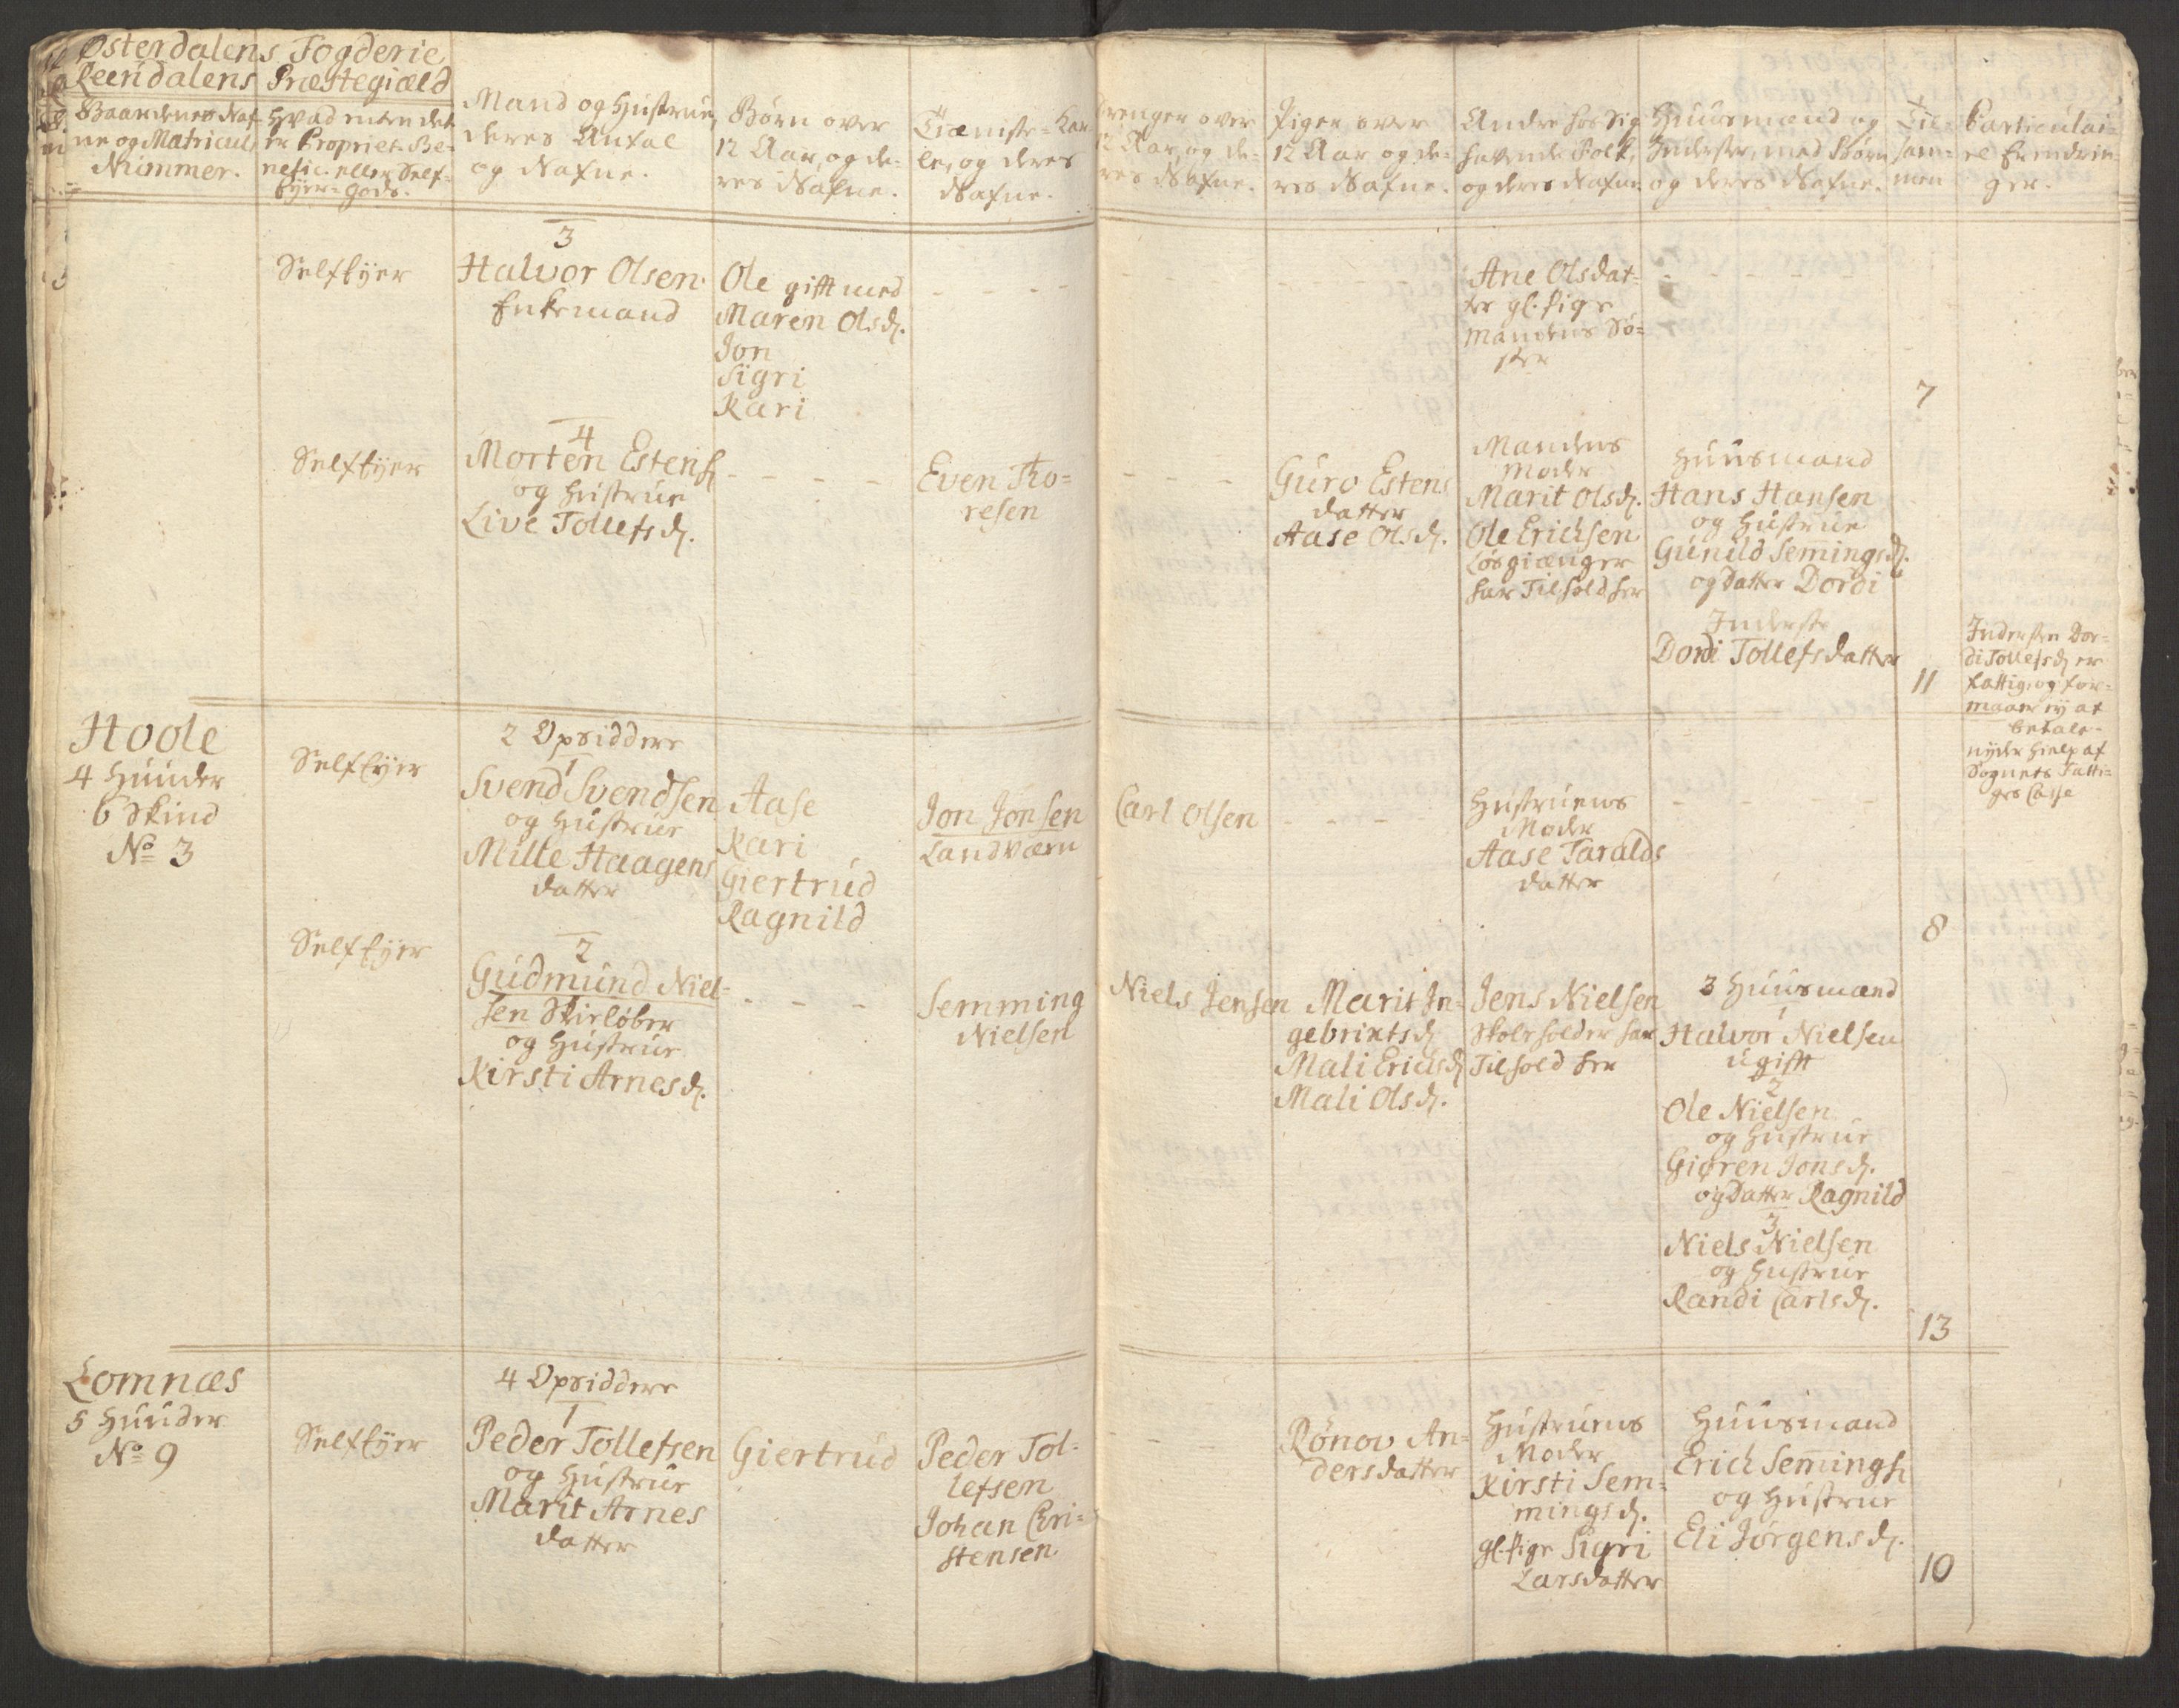 Østerdalens Fogderie
Reendalens Præstegield
Gaardenes Naf-
ne og Matricul
Nummer.
Hvad enten det
er Propriet. Be-
nefic. eller Self-
Eyer-Gods.
Mand og Hustrue,
deres Antal
og Nafne.
Børn over
12 Aar, og de-
res Nafne.
Tieniste-Kar-
le, og deres
Nafne.
Drenger over
12 Aar, og de-
res Nafne.
Piger over
12 Aar og de-
res Nafne.
Andre hos sig
havende Folk,
og deres Nafne
Huusmænd og
Inderster, med Børn
og deres Nafne.
Til-
sam-
men
Particulai-
re Erindrin-
ger.
SelfEyer
3
Halvor Olsen
Enkemand
Ole gift med
Maren Olsd.
Jon
Sigri
Kari
Ane Olsdat-
ter gl. Pige
Mandens Sø-
ster
7
SelfEyer
4
Morten Estens.
og Hustrue
Live Tollefsd.
Even Tho-
resen
Guro Estens
datter
Aase Olsd.
Mandens
Moder
Marit Olsd.
Ole Erichsen
Løsgiænger
har Tilhold her
Huusmand
Hans Hansen
og Hustrue
Gunild Semingsd.
og datter Dordi
Inderste
Dordi Tollefsdatter
11
Indersten Dor-
di Tollefsd er
fattig, og for-
maaer ey at
betale-
nyder Hielp af
Sognets Fatti-
ges Casse
Hoole
4 Huuder
6 Skind
No 3
SelfEyer
2 Opsiddere
1
Svend Svendsen
og Hustrue
Mille Haagens
datter
Aase
Kari
Giertrud
Ragnild
Jon Jonsen
Landværn
Carl Olsen
Hustruens
Moder
Aase Taralds
datter
8
SelfEyer
2
Gudmund Niel-
sen Skieløber
og Hustrue
Kirsti Arnesd.
Semming
Nielsen
Niels Jensen
Marit In-
gebrietsd
Mali Erichsd
Mali Olsd.
Jens Nielsen
Skoleholder har
Tilhold her
3 Huusmænd
1
Halvor Nielsen
ugift
2
Ole Nielsen
og Hustrue
Gioren Jonsd.
og Datter Ragnild
3
Niels Nielsen
og Hustrue
Randi Carlsd.
13
Lomnæs
5 Huuder
No 9
SelfEyer
4 Opsiddere
1
Peder Tollefsen
og Hustrue
Marit Arnes
datter
Giertrud
Peder Tol-
lefsen
Johan Chri-
stensen
Rønov An-
dersdatter
Hustruens
Moder
Kirsti Sem-
mingsd.
gl. Pige Sigri
Larsdatter
Huusmand
Erich Semings.
og Hustrue
Eli Jørgensd.
10